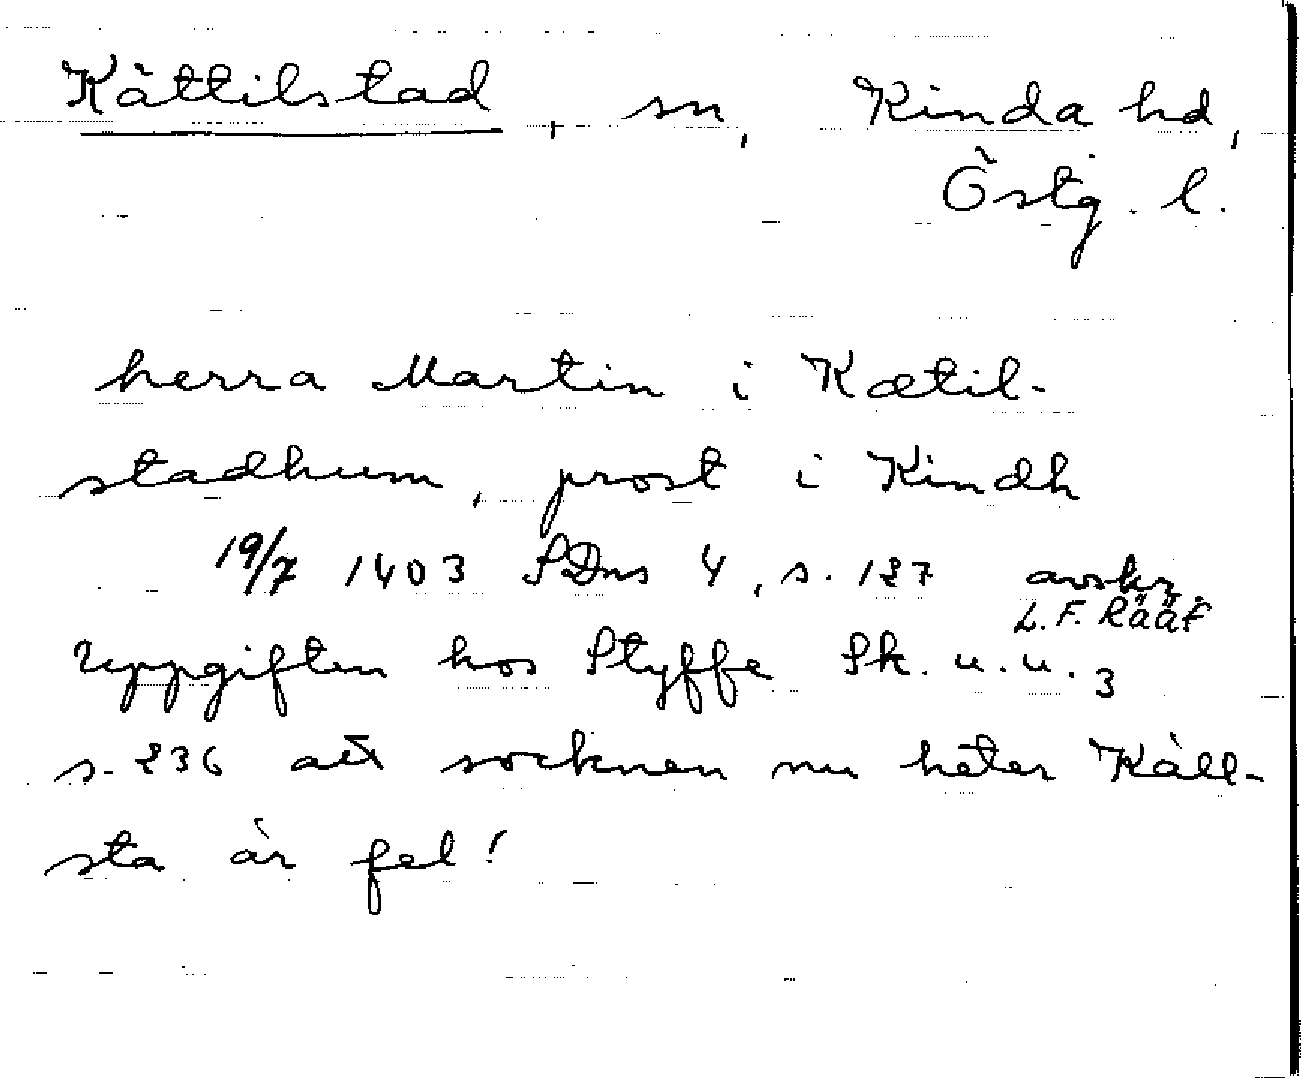 Kättilstad, sn, Kinda hd,
Östg. l.
herra Martin i Kætil-
stadhum, prost i Kindh
19/7 1403 SDns 4, s. 127 avskr.
L. F. Rääf
Uppgiften hos Styffe Sk. u. u. 3
s. 236 att socknen nu heter Käll-
sta är fel!